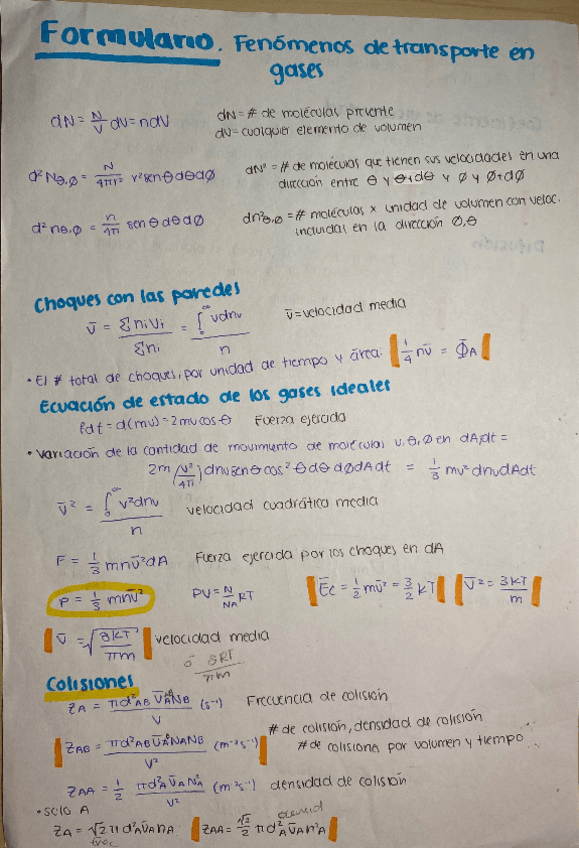 Formulario. Fenómenos de transporte en
gases
dN = N/V dV = ndV
dN = # de moléculas presente
dV = cualquier elemento de volumen
d²Nθ,Ø = N/4πr² r² senθdθdØ
dN² = # de moléculas que tienen sus velocidades en una
dirección entre θ y θ+dθ y Ø y Ø+dØ
d²nθ,Ø = n/4π senθdθdØ
dn²θ,Ø = # moléculas x unidad de volumen con veloc.
incluidas en la dirección Ø,θ
Choques con las paredes
v̄ = Σnᵢvᵢ/Σnᵢ = ∫₀^∞ vdnv/n
v̄ = velocidad media
• El # total de choques, por unidad de tiempo y área. 1/4 nv̄ = Φ̄A
Ecuación de estado de los gases ideales
Fdt = d(mv) = 2mv cosθ Fuerza ejercida
• Variación de la cantidad de movimiento de moléculas v,θ,Ø en dA,dt =
2m (v²/4π) dnv senθ cos²θ dθ dØ dA dt = 1/3 mv² dnv dA dt
v̄² = ∫₀^∞ v²dnv/n velocidad cuadrática media
F = 1/3 mnv̄²dA Fuerza ejercida por los choques en dA
P = 1/3 mnv̄²
PV = N/NA RT
Ēc = 1/2 mv̄² = 3/2 kT
v̄² = 3kT/m
v̄ = √(8kT/πm) velocidad media
ó 8RT/πm
Colisiones
ZA = πd²AB v̄A NB/V (s⁻¹) Frecuencia de colisión
# de colisión, densidad de colisión
ZAB = πd²AB v̄A NA NB/V² (m⁻³s⁻¹) # de colisiones por volumen y tiempo
ZAA = 1/2 πd²A v̄A N²A/V² (m⁻³s⁻¹) densidad de colisión
• solo A
ZA = √2 π d²A v̄A nA
ZAA = √2/2 π d²A v̄A n²A